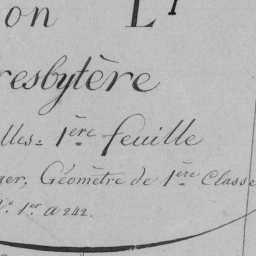 on L
resbytère
lles= 1ère feuille
er, Géomètre de 1ère Classe
1er a 242.